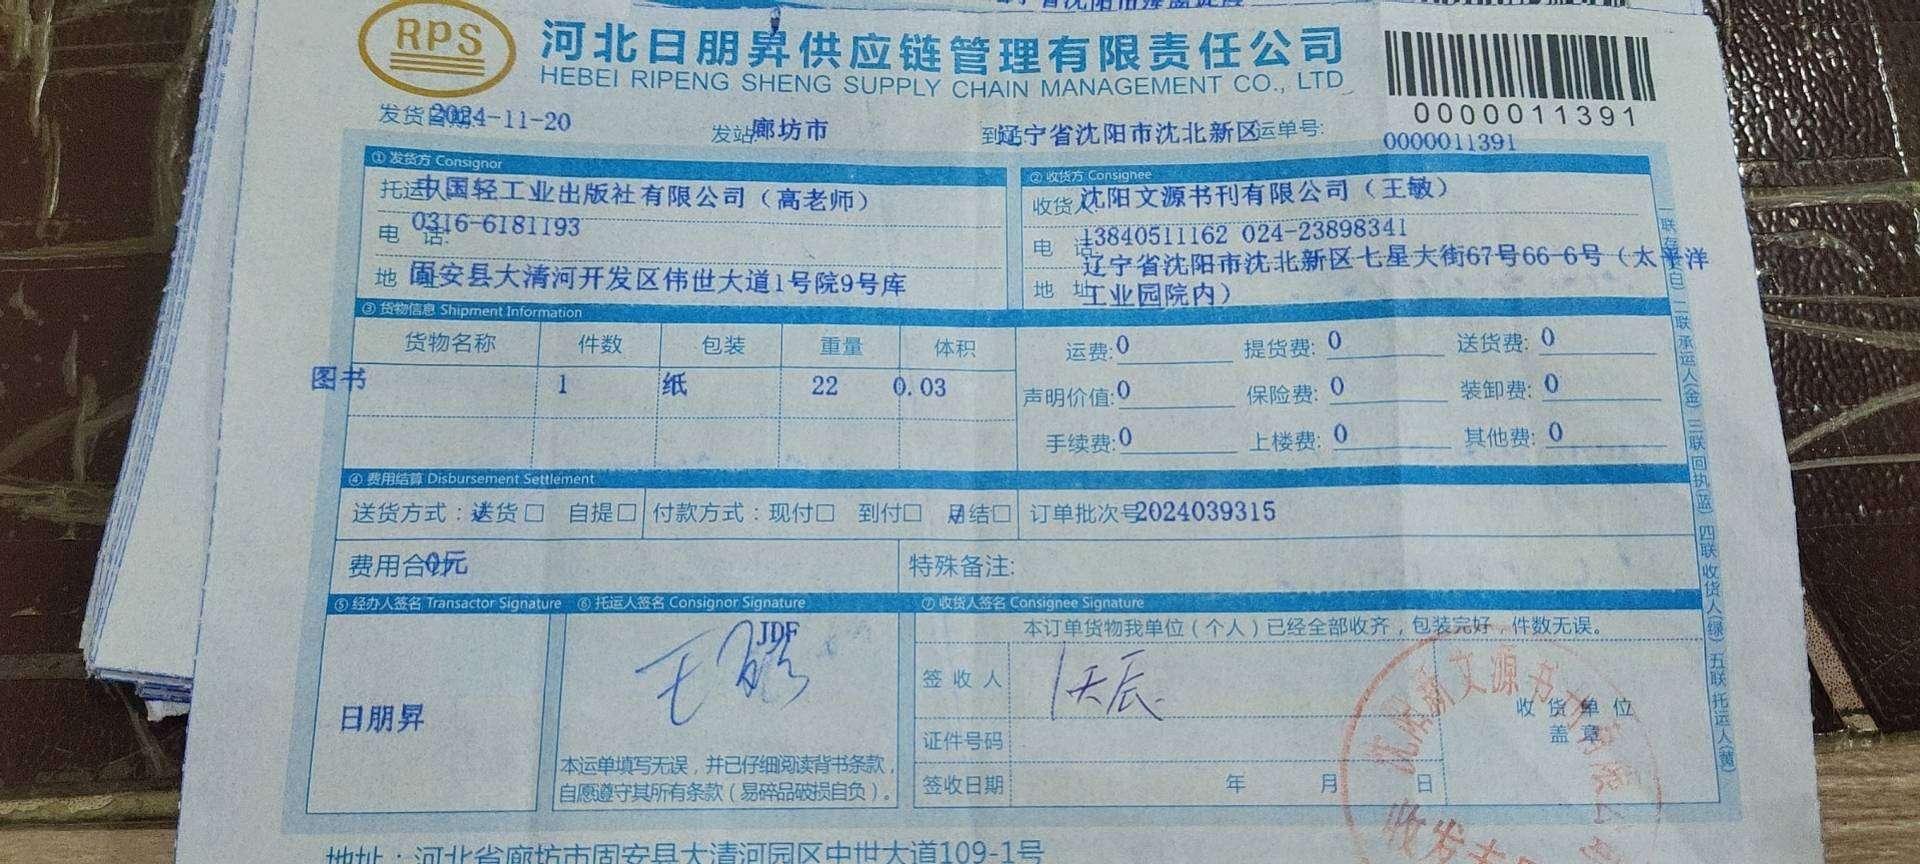 RPS
河北日朋昇供应链管理有限责任公司
HEBEI RIPENG SHENG SUPPLY CHAIN MANAGEMENT CO., LTD
0000011391
发货日期: 2024-11-20 发站: 廊坊市 到站: 辽宁省沈阳市沈北新区 运单号: 0000011391
① 发货方 Consignor
托运人: 中国轻工业出版社有限公司（高老师）
电 话: 0316-6181193
地 址: 固安县大清河开发区伟世大道1号院9号库
② 收货方 Consignee
收货人: 沈阳文源书刊有限公司（王敏）
电 话: 13840511162 024-23898341
地 址: 辽宁省沈阳市沈北新区七星大街67号66-6号（太平洋
工业园院内）
③ 货物信息 Shipment Information
货物名称 件数 包装 重量 体积
图书 1 纸 22 0.03
运费:0 提货费: 0 送货费: 0
声明价值:0 保险费: 0 装卸费: 0
手续费:0 上楼费: 0 其他费: 0
④ 费用结算 Disbursement Settlement
送货方式：送货□ 自提□ 付款方式：现付□ 到付□ 月结□ 订单批次号 2024039315
费用合计 0元 特殊备注:
⑤ 经办人签名 Transactor Signature ⑥ 托运人签名 Consignor Signature ⑦ 收货人签名 Consignee Signature
日朋昇
JDF
本运单填写无误，并已仔细阅读背书条款，
自愿遵守其所有条款（易碎品破损自负）。
本订单货物我单位（个人）已经全部收齐，包装完好，件数无误。
签收人
证件号码
签收日期 年 月 日
收货单位
盖章
二联承运人(金) 三联回执(蓝) 四联收货人(绿) 五联托运人(黄)
地址：河北省廊坊市固安县大清河园区中世大道109-1号